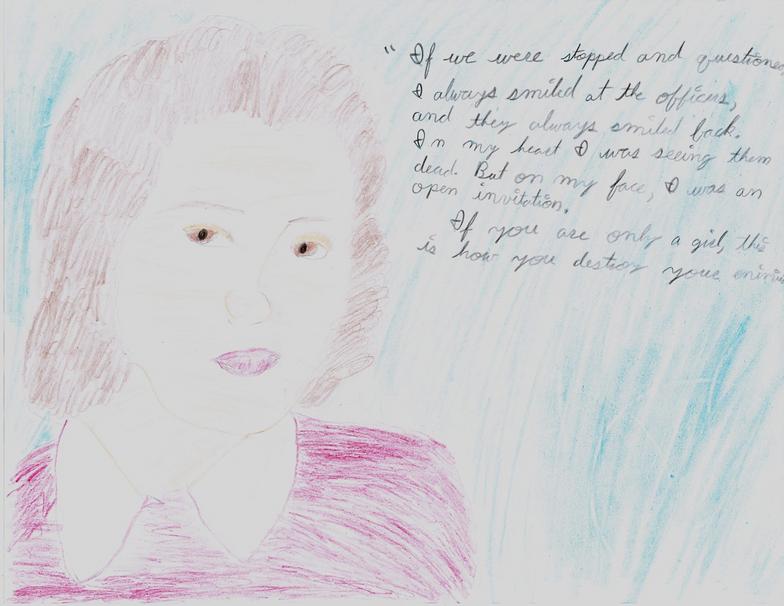 " If we were stopped and questioned
I always smiled at the officers,
and they always smiled back.
In my heart I was seeing them
dead. But on my face, I was an
open invitation.
If you are only a girl, this
is how you destroy your